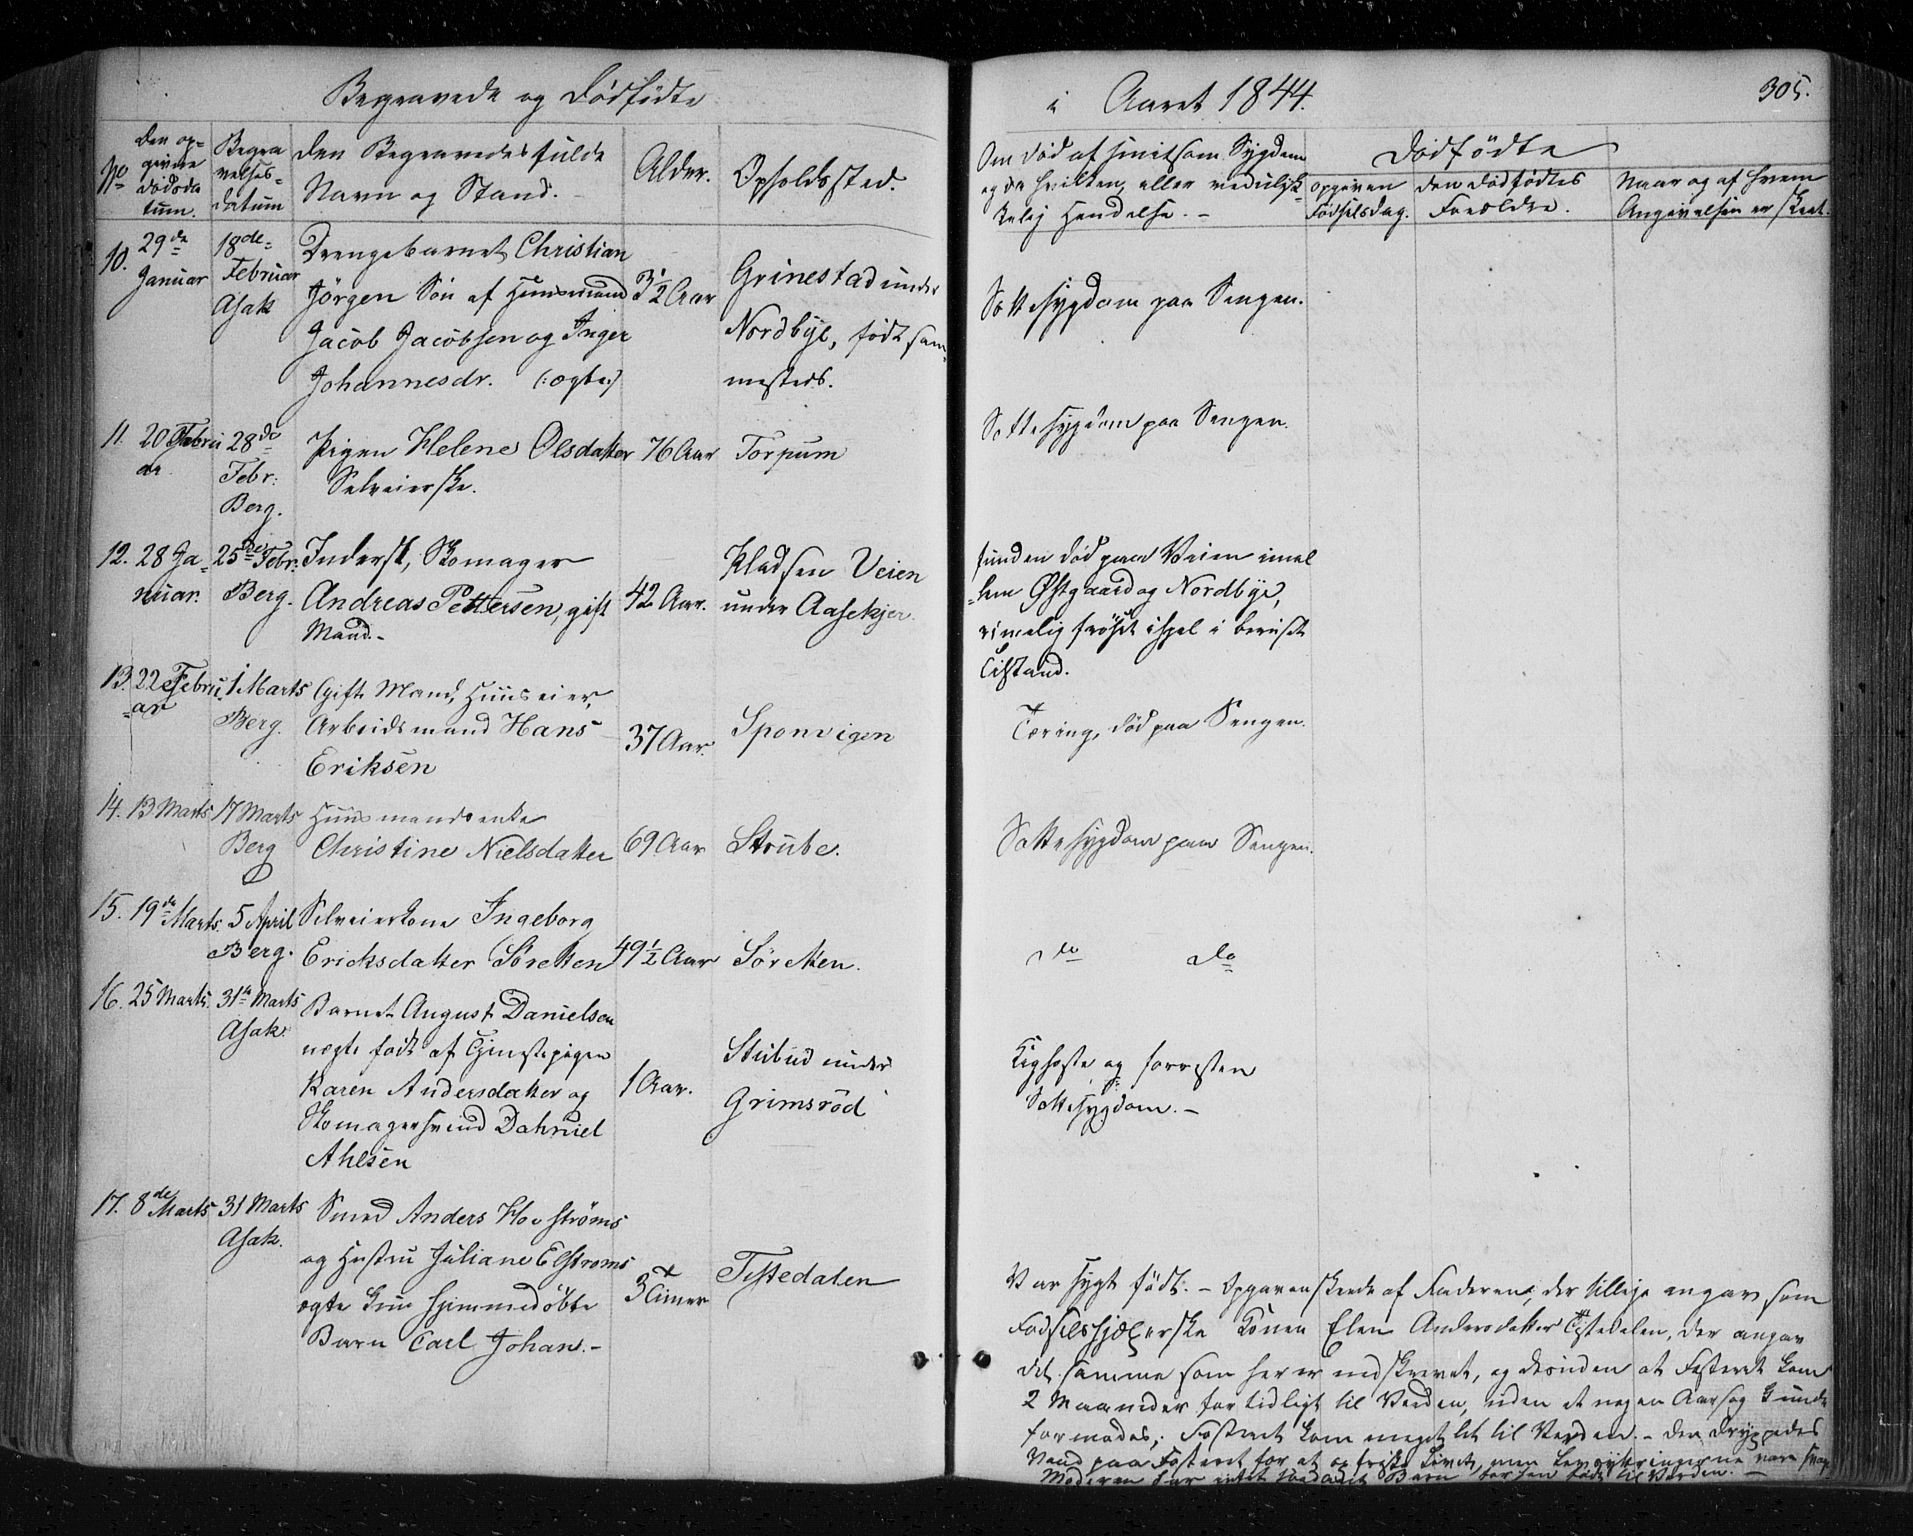 Begravede og Dödfödte
i Aaret 1844.
305.
No
Den op-
givne
Dödsda
tum.
Begra
velses-
datum
Den Begravedes fulde
Navn og Stand.
Alder.
Opholdssted.
Om död af smitsom Sygdom
og da hvilken, eller ved ulyk-
kelig Hendelse. -
Dödfödte
opgiven
Födselsdag.
den dödfödtes
Foreldre.
Naar og af hvem
Angivelsen er skeet.
10.
29de
Januar
18de
Februar
Asak
Drengebarnet Christian
Jörgen Sön af Huusmand
Jacob Jacobsen og Inger
Johannesdr. (:ægte:)
3½ Aar
Grinestad under
Nordbye, födt sam-
mesteds.
Sottesygdom paa Sengen.
11.
20 Febru
ar
28de
Febr:
Berg.
Pigen Helene Olsdatter
Selveierske.
76 Aar
Torpum
Sottesygdom paa Sengen.
12.
28 Ja-
nuar.
25de Febr:
Berg.
Inderst, Skomager
Andreas Pettersen, gift
Mand.-
42 Aar.
Kladsen Veien
under Aasekjer.
funden död paa Veien imel
-lem Østgaard og Nordbye,
rimelig fröset ihjel i beruset
Tilstand.
13.
22 Febru-
-ar
1 Marts
Berg.
Gift Mand, Huuseier,
Arbeidsmand Hans
Eriksen
37 Aar.
Sponvigen
Tæring, död paa Sengen.
14.
13 Marts
17 Marts
Berg
Huusmandsenke
Christine Nielsdatter
69 Aar
Strube.
Sottesygdom paa Sengen.
15.
19de Marts.
5 April
Berg.
Selveierkone Ingeborg
Ericksdatter Söretten
49½ Aar
Söretten.
do do
16.
25 Marts.
31te Marts
Asak.
Barnet August Danielsen
uægte födt af Tjenestepigen
Karen Andersdatter og
Skomagersvend Dahniel
Ahlsen
1 Aar.
Stubud under
Grimsröd
Kighoste og forresten
Sottesygdom. -
17.
8de Marts
31 Marts
Asak.
Smed Anders Hovströms
og Hustru Juliane Elströms
ægte kun hjemmedöbte
Barn Carl Johan.-
3 Timer
Tistedalen
Var sygt födt. - Opgaven skeede af Faderen, der tillige angav som
Födselshjælperske Konen Elen Andersdatter Tistedalen, der angav
det samme som her er indskrevet, og desuden at Fosteret kom
2 Maaneder for tidligt til Verden, uden at nogen Aarsag kunde
formodes; Fosteret kom meget let til Verden. - Der dryppedes
Vand paa Fosteret for at opfriske Livet, men Levyttringerne vare svage
Moderen har intet Barn forhen födt til Verden. -